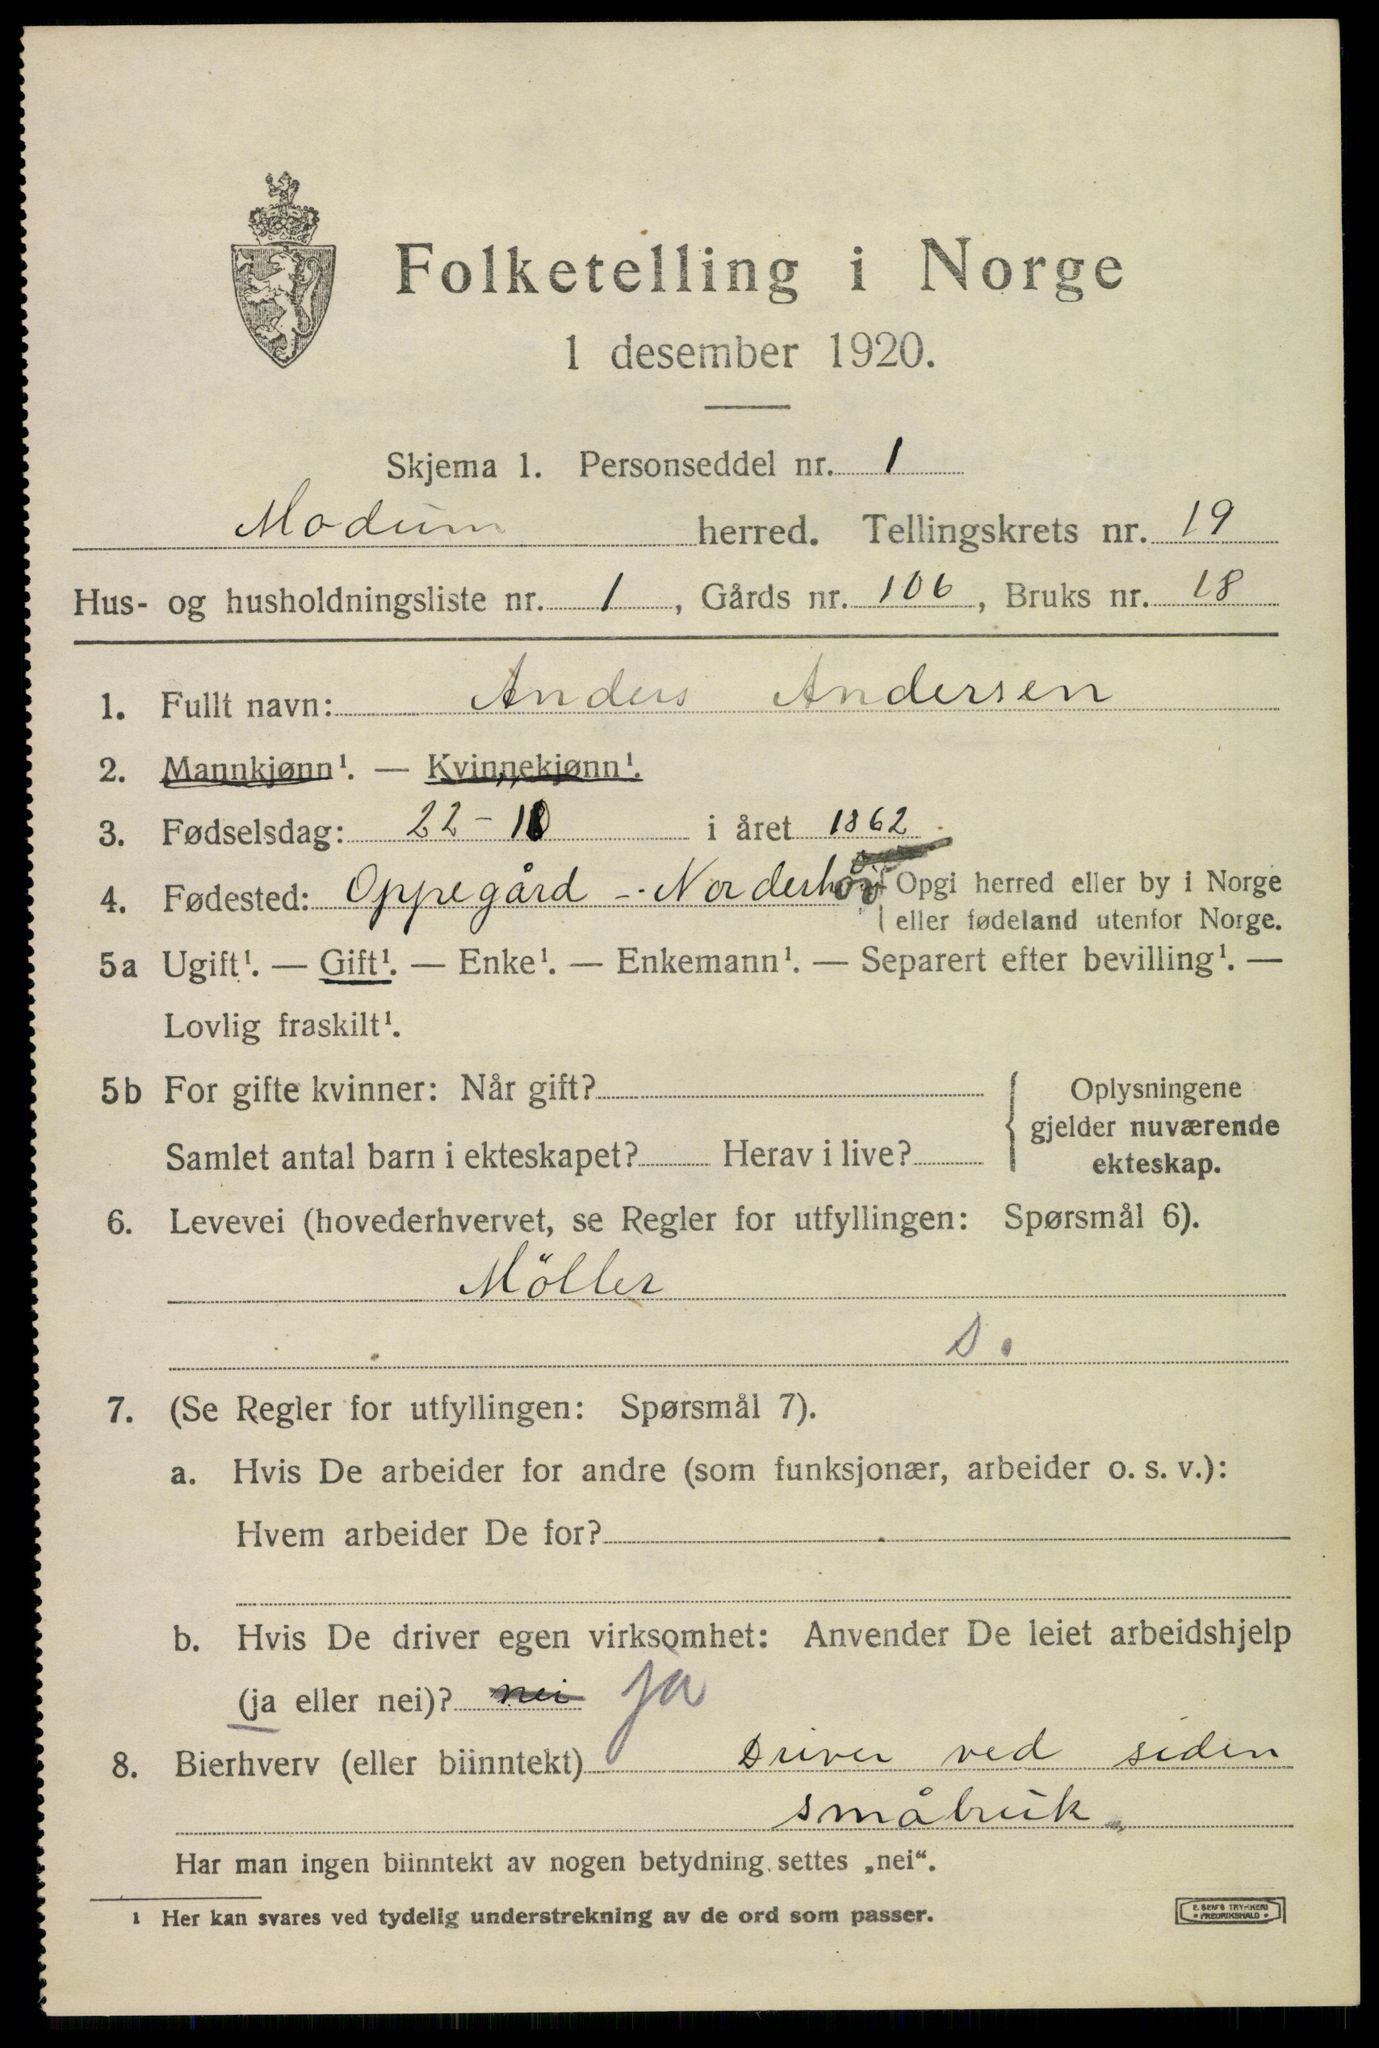 Folketelling i Norge
1 desember 1920.
Skjema 1. Personseddel nr. 1
Modum herred. Tellingskrets nr. 19
Hus- og husholdningsliste nr. 1, Gårds nr. 106, Bruks nr. 18
1. Fullt navn: Anders Andersen
2. Mannkjønn¹. — Kvinnekjønn¹.
3. Fødselsdag: 22-10 i året 1862
4. Fødested: Oppegård - Norderhov { Opgi herred eller by i Norge
eller fødeland utenfor Norge.
5a Ugift¹. — Gift¹. — Enke¹. — Enkemann¹. — Separert efter bevilling¹. —
Lovlig fraskilt¹.
5b For gifte kvinner: Når gift? { Oplysningene
gjelder nuværende
Samlet antal barn i ekteskapet? Herav i live? ekteskap.
6. Levevei (hovederhvervet, se Regler for utfyllingen: Spørsmål 6).
Möller
S.
7. (Se Regler for utfyllingen: Spørsmål 7).
a. Hvis De arbeider for andre (som funksjonær, arbeider o. s. v.):
Hvem arbeider De for?
b. Hvis De driver egen virksomhet: Anvender De leiet arbeidshjelp
(ja eller nei)? nei ja
8. Bierhverv (eller biinntekt) Driver ved siden
småbruk
Har man ingen biinntekt av nogen betydning settes „nei".
¹ Her kan svares ved tydelig understrekning av de ord som passer.
E. SEM'S TRYKKERI
FREDRIKSHALD